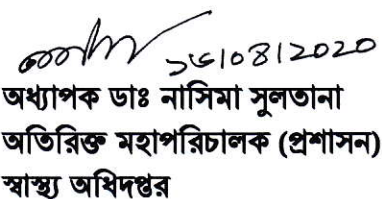 ১৬/০৪/২০২০
অধ্যাপক ডাঃ নাসিমা সুলতানা
অতিরিক্ত মহাপরিচালক (প্রশাসন)
স্বাস্থ্য অধিদপ্তর